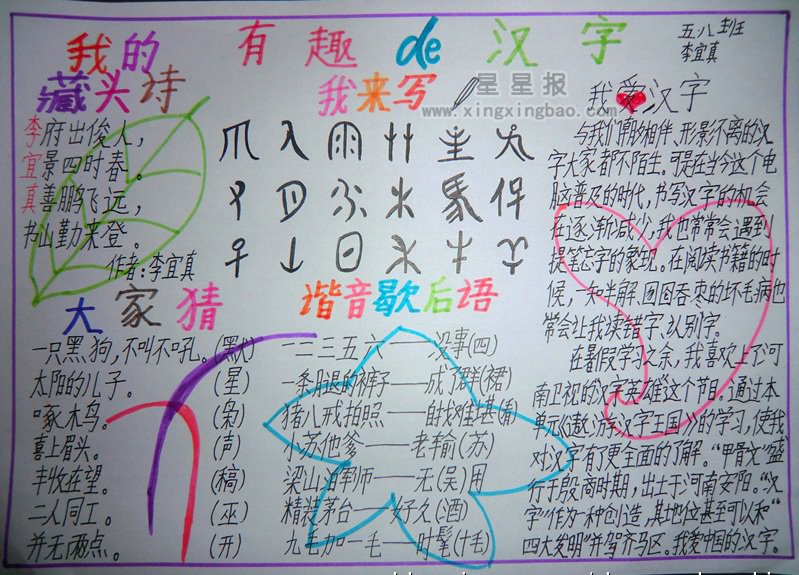 我的 有趣 de 汉字
五.八班
李宜真
星星报
www.xingxingbao.com
藏头诗
李府出俊人，
宜景四时春。
真善鹏飞远，
书山勤来登。
作者：李宜真
我来写
大家猜
一只黑狗，不叫不吼。(默)
太阳的儿子。(星)
啄木鸟。(枭)
喜上眉头。(声)
丰收在望。(稿)
二人同工。(巫)
并无两点。(开)
谐音歇后语
一二三五六——没事(四)
一条腿的裤子——成了群(裙)
猪八戒拍照——自找难堪(看)
小苏他爹——老输(苏)
梁山泊军师——无(吴)用
精装茅台——好久(酒)
九毛加一毛——时髦(十毛)
我爱汉字
与我们朝夕相伴、形影不离的汉
字大家都不陌生。可是在当今这个电
脑普及的时代，书写汉字的机会
在逐渐减少，我也常常会遇到
提笔忘字的象现。在阅读书籍的时
候，一知半解、囫囵吞枣的坏毛病也
常会让我读错字、认别字。
在暑假学习之余，我喜欢上了河
南卫视的“汉字英雄”这个节目。通过本
单元《遨游汉字王国》的学习，使我
对汉字有了更全面的了解。“甲骨文”盛
行于殷商时期，出土于河南安阳。“汉
字”作为一种创造，其地位甚至可以和“
四大发明”并驾齐马区。我爱中国的汉字。